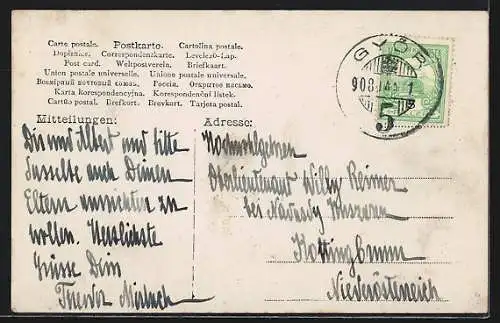 Carte postale. Postkarto. Cartolina postale.
Dopisnice. Correspondenzkarte. Levelező-Lap.
Post card. Weltpostverein. Briefkaart.
Union postale universelle. Unione postale universale.
Всемірный почтовый союзъ. Россія. Открытое письмо.
Karta korespondencyjna. Korespondenční lístek.
Cartăo postal. Brefkort. Brevkort. Tarjeta postal.
GYŐR
908
5
Mitteilungen:
Dir und Albert und bitte
Dasselbe auch Deinen
Eltern ausrichten zu
wollen. Herzlichste
Grüsse Dein
Theodor
Adresse:
Hochwolgeboren
Oberlieutenant Willy Reimer
bei
Kottingbrunn
Niederösterreich